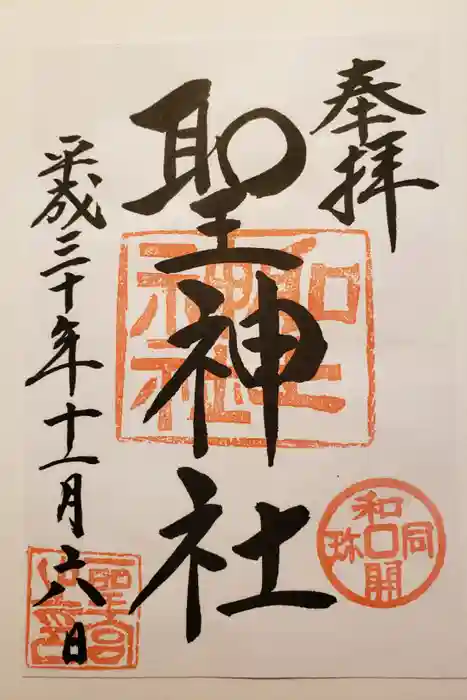 奉拝
聖神社
平成三十年十一月六日
聖神社
和同開珎